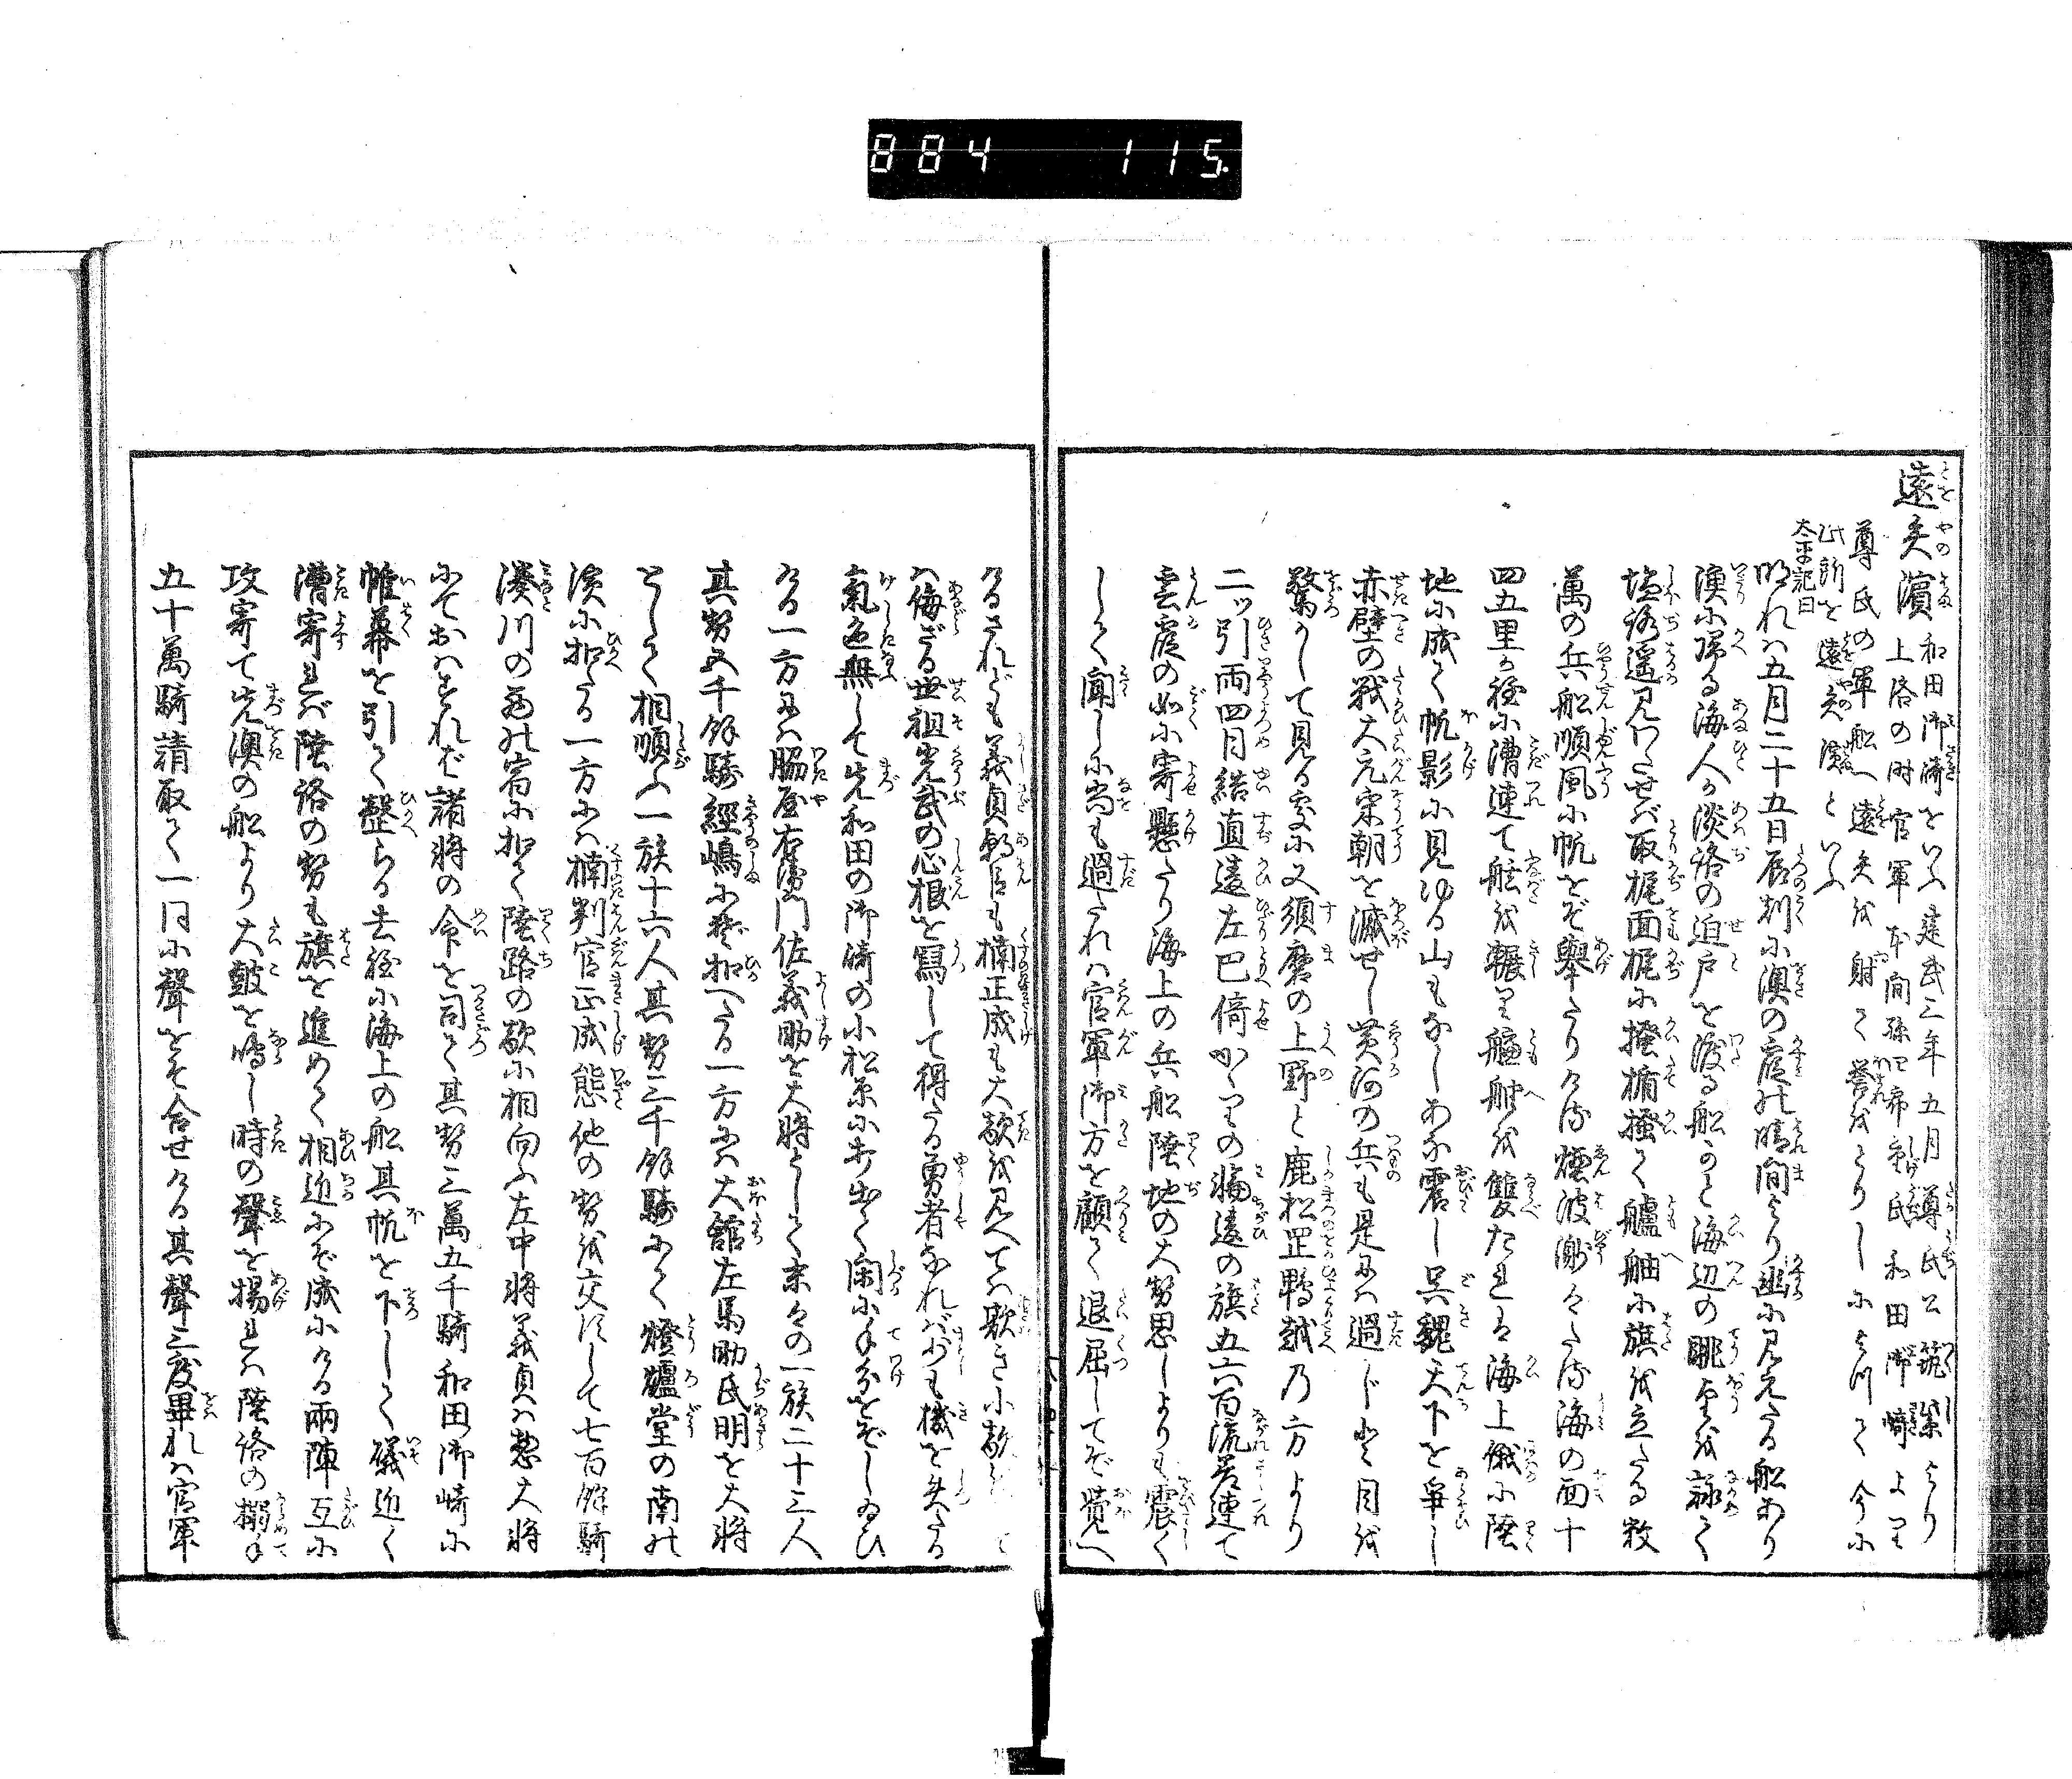 884 115
遠矢濵 和田御崎をいふ建武三年五月尊氏公筑紫より
上洛の時官軍本間孫四郎重氏和田御崎より
尊氏の軍船へ遠矢を射て誉をとりしによつて今に
此所を遠矢濵といふ
太平記曰
明れは五月二十五日辰刻に澳の霞の晴間より幽に見えたる船あり
漁に帰る海人か淡路の迫戸を渡る船かと海辺の眺望を詠て
塩路遥見わたせば取梶面梶に掻楯掻て艫舳に旗を立たる数
萬の兵船順風に帆をぞ舉たりける煙波渺々たる海の面十
四五里か程に漕連て舷を輾り艫舳を雙たれは海上俄に陸
地に成て帆影に見ゆる山もなしあな震し呉魏天下を争し
赤壁の戦大元宋朝を滅せし黄河の兵も是には過じと目を
驚かして見る處に又須磨の上野と鹿松岡鵯越乃方より
二ツ引両四目結直違左巴倚かゝりの輪違の旗五六百流差連て
雲霞の如に寄懸たり海上の兵船陸地の大勢思しよりも震く
して聞しに尚も過たれは官軍御方を顧て退屈してぞ覚へ
けるされども義貞朝臣も楠正成も大敵を見ては欺き小敵
は侮ざる世祖光武の心根を写して得たる勇者なれば少も機を失たる
氣色無して先和田の御崎の小松原に出て閑に手分をぞしたまひ
ける一方には脇屋右衛門佐義助を大将として末々の一族二十三人
其勢五千餘騎經嶋にぞ扣へたる一方には大舘左馬助氏明を大将
として相順ふ一族十六人其勢三千餘騎にて燈爐堂の南の
濵に扣たる一方には楠判官正成態他の勢を交ずして七百餘騎
湊川の西の宿に扣て陸路の敵に相向ふ左中将義貞は惣大将
にておはすれば諸将の命を司て其勢二萬五千騎和田御崎に
帷幕を引て整らる去程に海上の船其帆を下して礒近く
漕寄れば陸路の勢も旗を進めて相近にぞ成にける両陣互に
攻寄て先澳の船より大鼓を鳴し時の聲を揚れは陸路の搦手
五十萬騎請取て一同に聲をぞ合せける其聲三度畢れは官軍